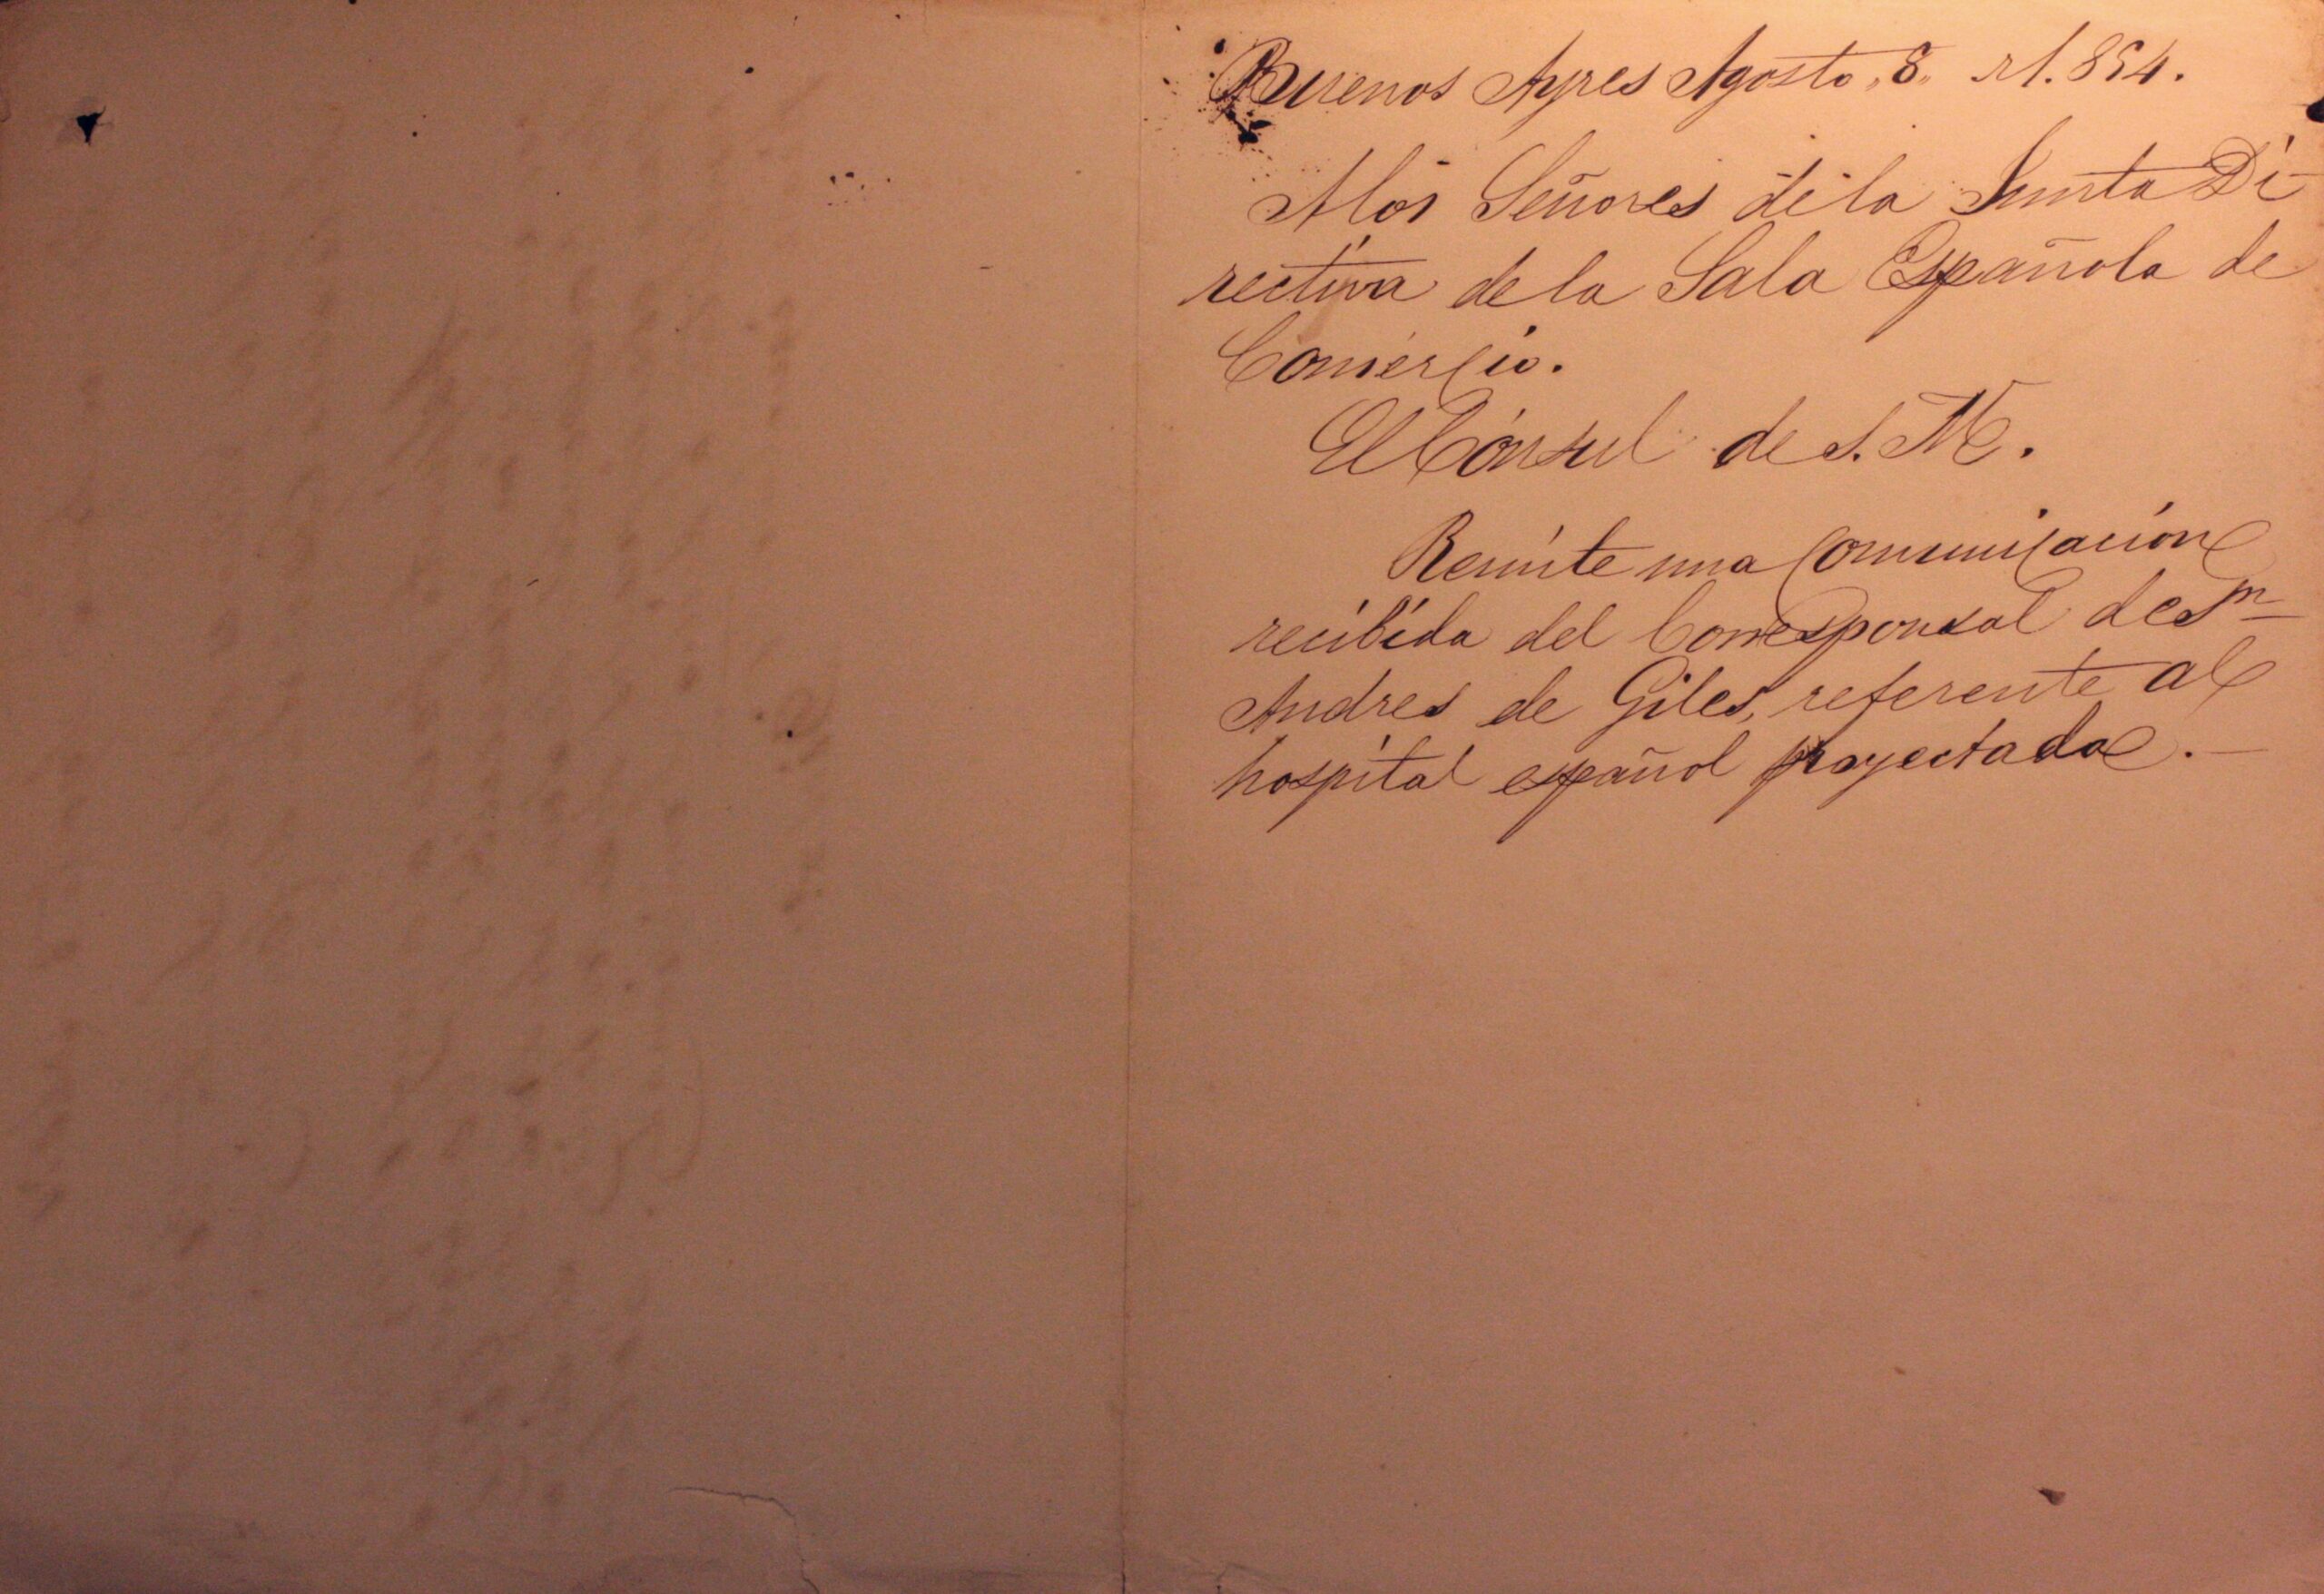 Buenos Ayres Agosto "8" de 1.854.
A los Señores de la Junta Di-
rectiva de la Sala Española de
Comercio.
El Cónsul de S. M.
Remite una Comunicacion
recibida del Corresponsal de Sn
Andres de Giles, referente al
hospital español proyectado.—